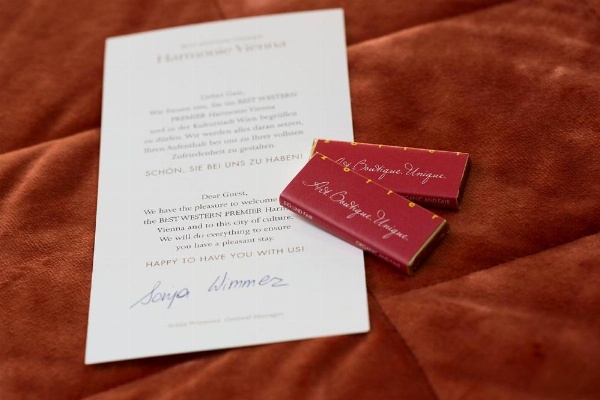 Harmonie Vienna
Lieber Gast,
Wir freuen uns, Sie im BEST WESTERN
PREMIER Harmonie Vienna
und in der Kulturstadt Wien begrüßen
zu dürfen. Wir werden alles daran setzen,
Ihren Aufenthalt bei uns zu Ihrer vollsten
Zufriedenheit zu gestalten.
SCHÖN, SIE BEI UNS ZU HABEN!
Dear Guest,
We have the pleasure to welcome
the BEST WESTERN PREMIER Harm
Vienna and to this city of culture.
We will do everything to ensure
you have a pleasant stay.
HAPPY TO HAVE YOU WITH US!
Sonja Wimmer
Sonja Wimmer, General Manager
Art. Boutique. Unique.
Art. Boutique. Unique.